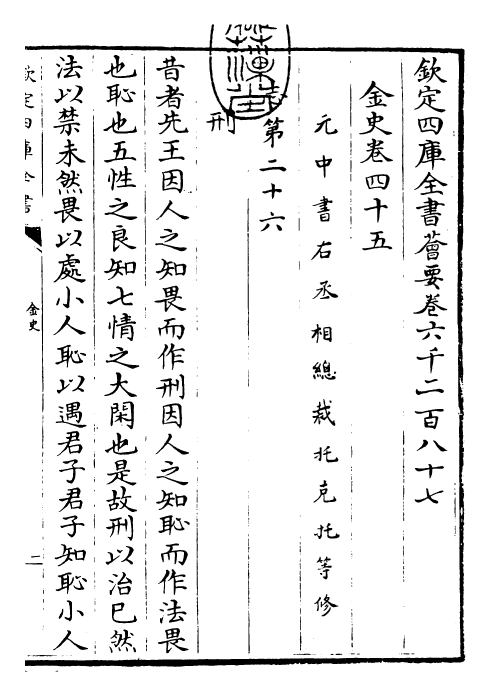 欽定四庫全書薈要卷六千二百八十七
金史卷四十五
元中書右丞相總裁托克托等修
志第二十六
刑
昔者先王因人之知畏而作刑因人之知恥而作法畏
也恥也五性之良知七情之大閑也是故刑以治已然
法以禁未然畏以處小人恥以遇君子君子知恥小人
欽定四庫全書
金史